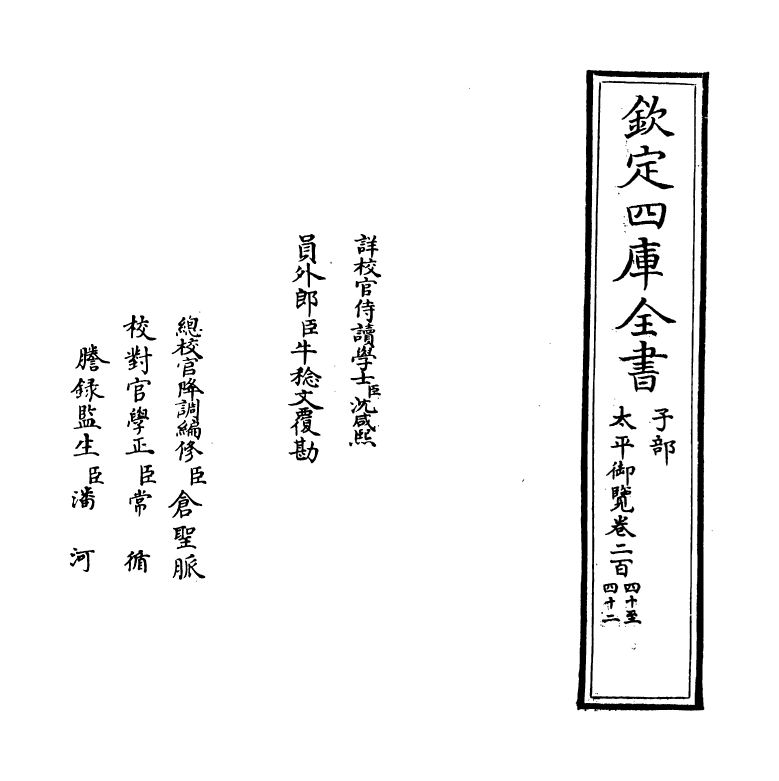 欽定四庫全書
子部
太平御覽卷二百
四十至
四十二
詳校官侍讀學士臣沈咸熙
員外郎臣牛稔文覆勘
總校官降調編修臣倉聖脈
校對官學正臣常循
謄録監生臣潘河